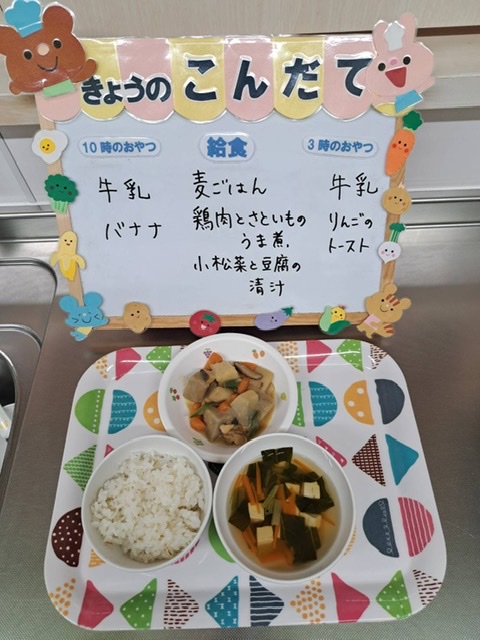 きょうのこんだて
10時のおやつ
牛乳
バナナ
給食
麦ごはん
鶏肉とさといもの
うま煮.
小松菜と豆腐の
清汁
3時のおやつ
牛乳
りんごの
トースト